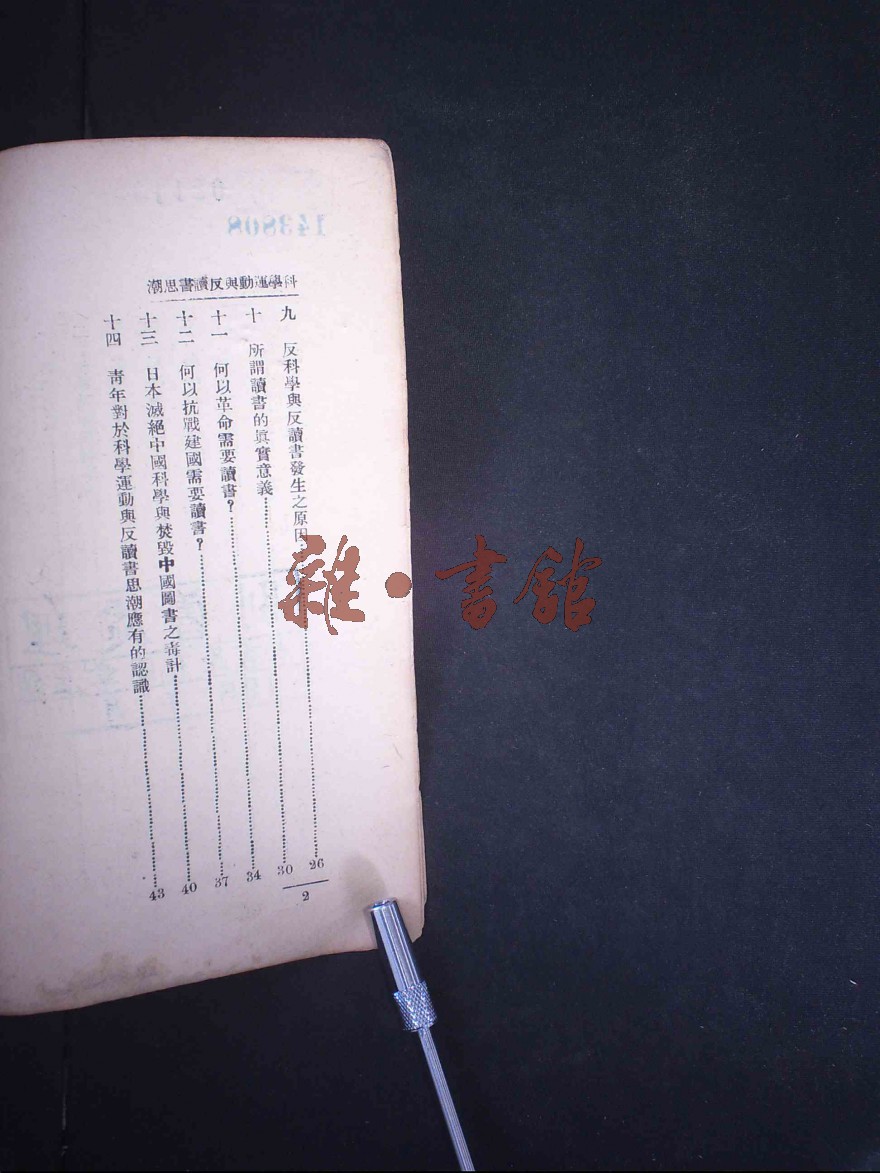 科學運動與反讀書思潮
九 反科學與反讀書發生之原因……26
十 所謂讀書的眞實意義……30
十一 何以革命需要讀書?……34
十二 何以抗戰建國需要讀書?……37
十三 日本滅絕中國科學與焚毀中國圖書之毒計……40
十四 靑年對於科學運動與反讀書思潮應有的認識……43
2
143808
雜·書館